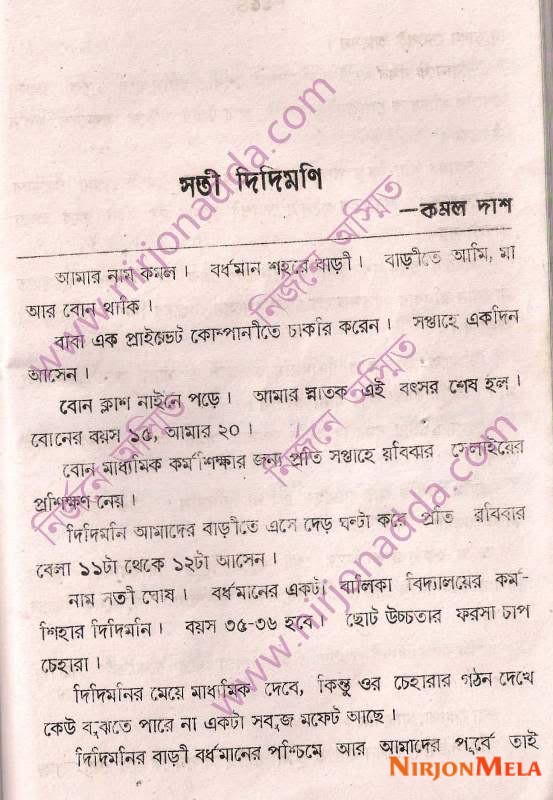 সতী দিদিমণি
—কমল দাশ
আমার নাম কমল। বর্ধমান শহরে বাড়ী। বাড়ীতে আমি, মা
আর বোন থাকি।
বাবা এক প্রাইভেট কোম্পানীতে চাকরি করেন। সপ্তাহে একদিন
আসেন।
বোন ক্লাশ নাইনে পড়ে। আমার স্নাতক এই বৎসর শেষ হল।
বোনের বয়স ১৫, আমার ২০।
বোন মাধ্যমিক কর্মশিক্ষার জন্য প্রতি সপ্তাহে রবিবার সেলাইয়ের
প্রশিক্ষণ নেয়।
দিদিমনি আমাদের বাড়ীতে এসে দেড় ঘন্টা করে প্রতি রবিবার
বেলা ১১টা থেকে ১২টা আসেন।
নাম সতী ঘোষ। বর্ধমানের একটা বালিকা বিদ্যালয়ের কর্ম-
শিহার দিদিমনি। বয়স ৩৫-৩৬ হবে। ছোট উচ্চতার ফরসা চাপ
চেহারা।
দিদিমনির মেয়ে মাধ্যমিক দেবে, কিন্তু ওর চেহারার গঠন দেখে
কেউ বুঝতে পারে না একটা সবুজ মফেট আছে।
দিদিমনির বাড়ী বর্ধমানের পশ্চিমে আর আমাদের পূর্বে তাই
www.nirjonadda.com
নির্জনে অস্মিত
নির্জনে অস্মিত
নির্জনে অস্মিত
www.nirjonadda.com
NIRJONMELA